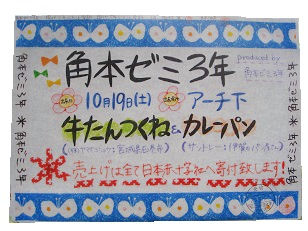 角本ゼミ3年
produced by
角本ゼミ3年
10月19日(土) アーチ下
牛たんつくね & カレーパン
売上げは全て日本赤十字社へ寄付致します!
角本ゼミ3年
角本ゼミ3年